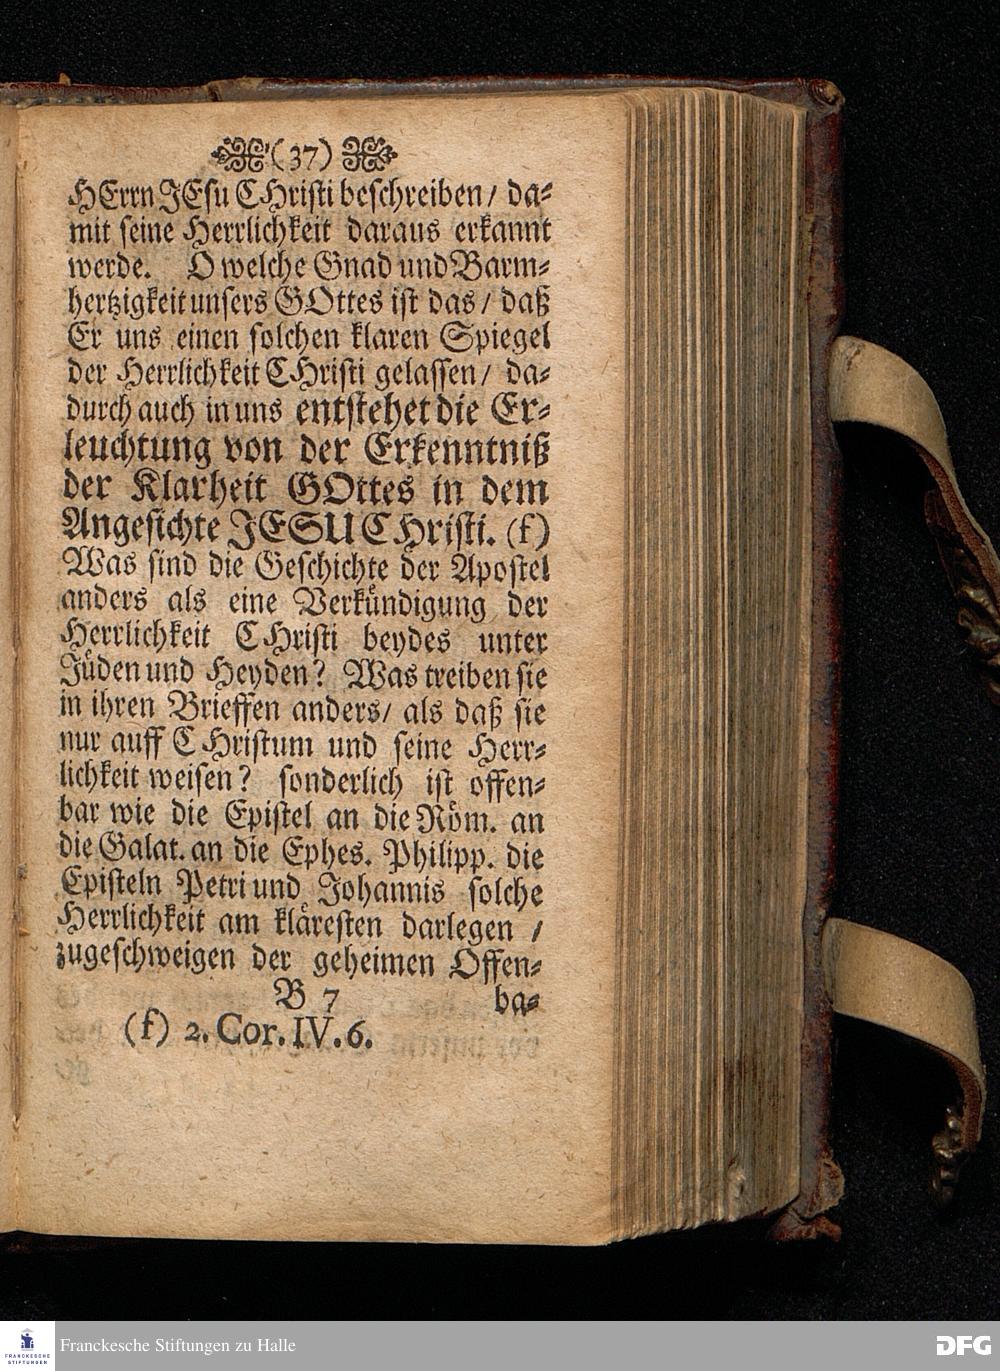 (37)
HErrn JEsu CHristi beschreiben / da-
mit seine Herrlichkeit daraus erkannt
werde. O welche Gnad und Barm-
hertzigkeit unsers GOttes ist das / daß
Er uns einen solchen klaren Spiegel
der Herrlichkeit CHristi gelassen / da-
durch auch in uns entstehet die Er-
leuchtung von der Erkenntniß
der Klarheit GOttes in dem
Angesichte JESU CHristi. (f)
Was sind die Geschichte der Apostel
anders als eine Verkündigung der
Herrlichkeit CHristi beydes unter
Jüden und Heyden? Was treiben sie
in ihren Brieffen anders / als daß sie
nur auff CHristum und seine Herr-
lichkeit weisen? sonderlich ist offen-
bar wie die Epistel an die Röm. an
die Galat. an die Ephes. Philipp. die
Episteln Petri und Johannis solche
Herrlichkeit am kläresten darlegen /
zugeschweigen der geheimen Offen-
B 7 ba-
(f) 2. Cor. IV. 6.
FRANCKESCHE STIFTUNGEN
Franckesche Stiftungen zu Halle
DFG